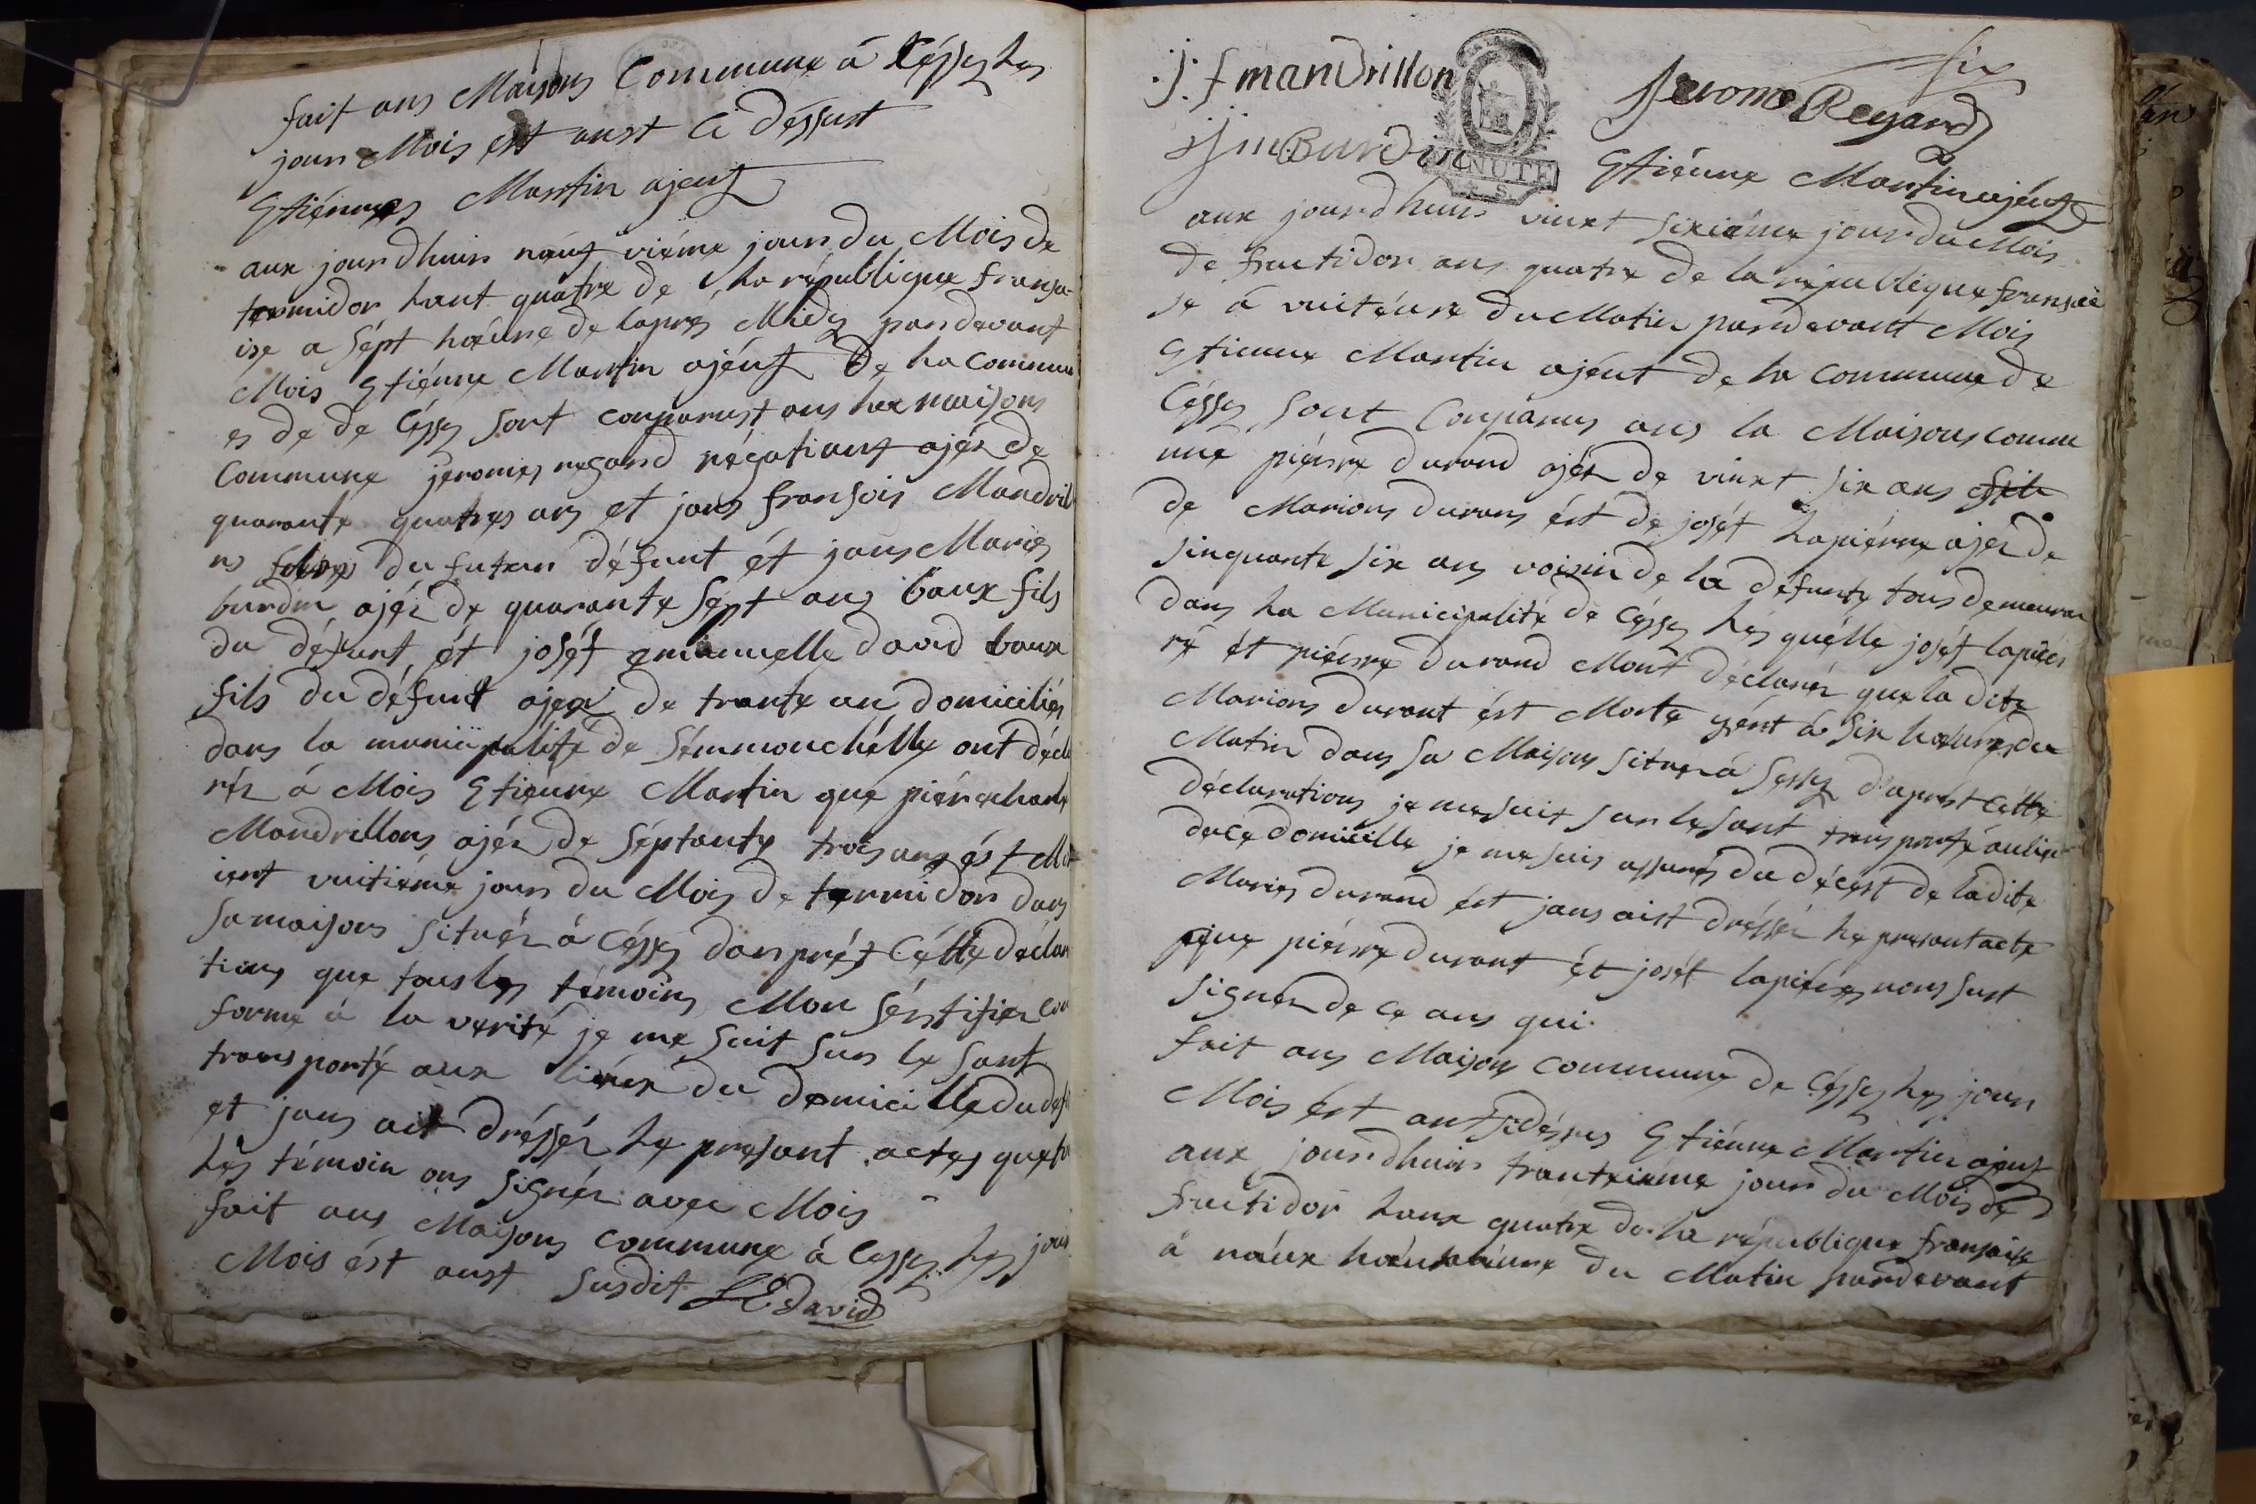 fait ans Maisons Commune á Céssy les
jour Mois est anst Ci déssust
Etiénnes Martin ajent
aux jourdhuis neuf viéme jour du Mois de
termidor lant quatre de la république fransa-
ise a sépt hœure de lapres Midy pardevant
Mois Etiénne Martin ajént de la Commun
es de de Céssy sont conparust ans lax maisons
Commune jeromes regard négotiant ajéz de
quarante quatres ans et jans fransois Mandril
ns du futeur défunt ét jans Maries
burdin ajéz de quarante sépt ans baux fils
du défunt ét joséf emanuelle david baux
fils du défunt ajez de trante an domiciliés
dans la muniipalité de Sémmouchélle ont décla
réz á Mois Etiénne Martin que piére charle
Mandrillons ajéz de séptante trois ans ést Mor
iert vuitiéme jour du Mois de termidor dans
sa maisons situéz á Céssy danprét Cétte déclara
tions que tous les témoins Mon séstifiez con
forme á la verité je me suit sur le sant
transporté aux liéux du domicille du def
et jans ait dréssér le presant actes que to
les témoin ons signér avec Mois
fait ans Maisons commune á Cessy les jour
Mois ést anst susdit LE david
six
j: f mandrillon
Jerome Regard
j m Burdin
MINUTE
Etiénne Martin ajént
aux jourdhuis vinxt sixiéme jour du Mois
de fructidor ans quatre de la république fransai
se á vuitéure du Matin pardevant Mois
Etienne Martin ajént de la Commune de
Céssy sont Conparus ans la Maisons comm
une piérre durand ajéz de vinxt six ans fils
de Marions durans ést de joséf lapiérre ajéz de
sinquante six ans voisin de la défunte tous demeuran
dans la Municipalité de Céssy lés quélle joséf lapiér
ré ét piérre durand Mont déclaréz que la dite
Marions durant ést Morte yért á six hœures du
Matin dans sa Maisons situéz á Sessy daprést Cétte
déclarations je me suit sur le sant transporté aulieu
de ce domicille je me suis assurés du décést de ladite
Maries durand ést jans aist dréssér le presant acte
que piérre durant ét joséf lapiérres nons sust
signér de ce ans qui.
fait ans Maisons commune de Céssy les jour
Mois ést ant sidéssus Etiénne Martin ajent
aux jourdhuis tranteiéme jour du Mois de
fructidor lanx quatre de la république fransaise
á náux hœure du Matin pardevant